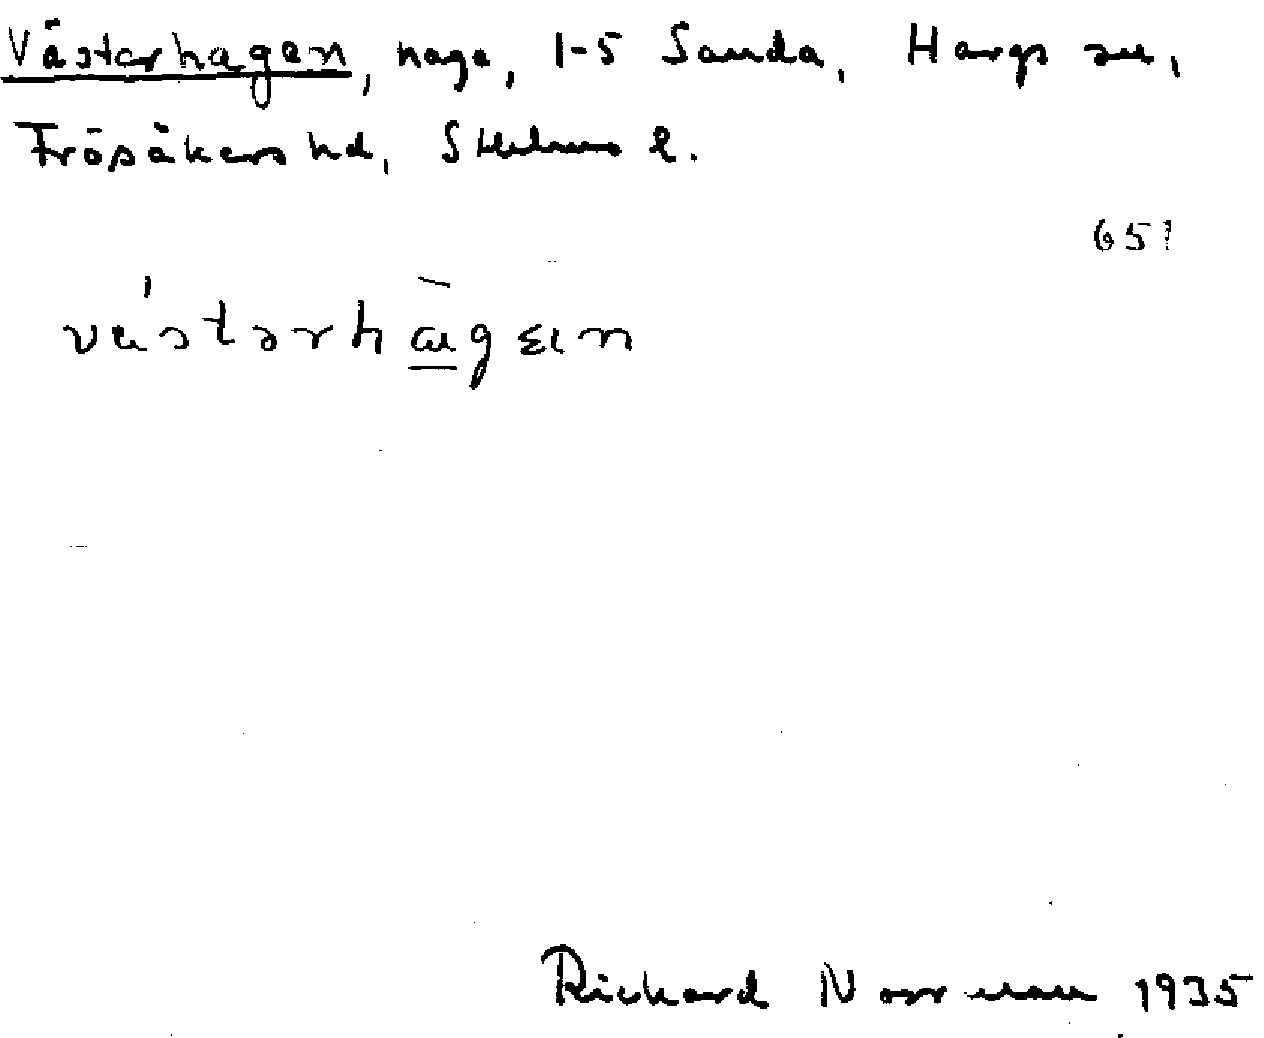 Västerhagen, hage, 1-5 Sanda, Hargs sn,
Frösåkers hd, Sthlms l.
651
västərhagen
Richard Norrman 1935